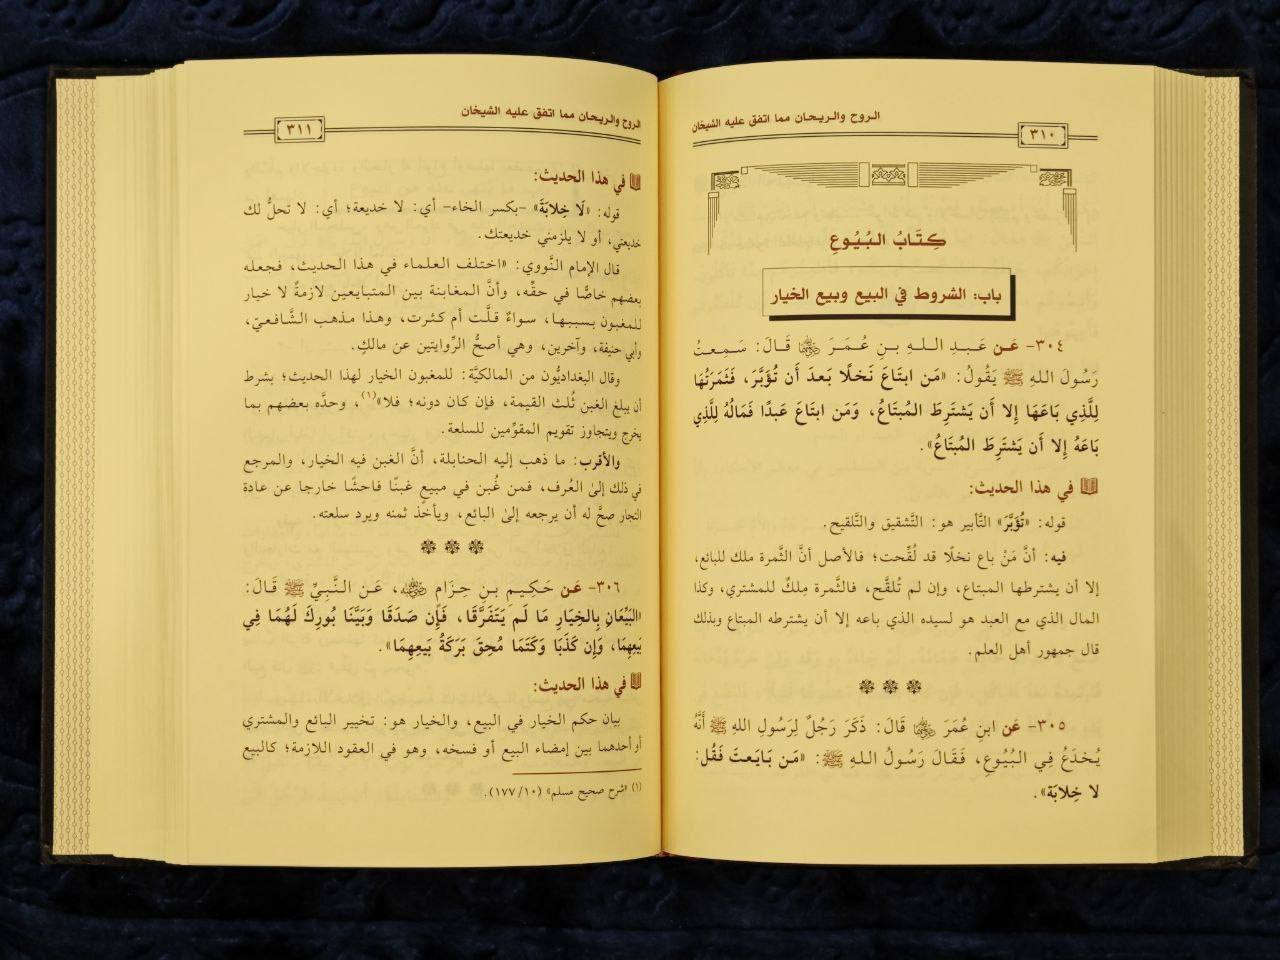 الروح والريحان مما اتفق عليه الشيخان
٣١٠
كِتَابُ البُيُوعِ
باب: الشروط في البيع وبيع الخيار
٣٠٤- عَن عَبدِ اللهِ بنِ عُمَرَ ﷠ قَالَ: سَمِعتُ
رَسُولَ اللهِ ﷺ يَقُولُ: «مَن ابتَاعَ نَخلًا بَعدَ أَن تُؤَبَّرَ، فَثَمَرَتُهَا
لِلَّذِي بَاعَهَا إِلا أَن يَشتَرِطَ المُبتَاعُ، وَمَن ابتَاعَ عَبدًا فَمَالُهُ لِلَّذِي
بَاعَهُ إِلا أَن يَشتَرِطَ المُبتَاعُ».
في هذا الحديث:
قوله: «تُؤَبَّرَ» التَّأبير هو: التَّشقيق والتَّلقيح.
فيه: أنَّ مَنْ باع نخلًا قد لُقِّحت؛ فالأصل أنَّ الثَّمرة ملك للبائع،
إلا أن يشترطها المبتاع، وإن لم تُلقَّح، فالثَّمرة مِلكٌ للمشتري، وكذا
المال الذي مع العبد هو لسيده الذي باعه إلا أن يشترطه المبتاع وبذلك
قال جمهور أهل العلم.
٣٠٥- عَن ابنِ عُمَرَ ﷠ قَالَ: ذَكَرَ رَجُلٌ لِرَسُولِ اللهِ ﷺ أَنَّهُ
يُخدَعُ فِي البُيُوعِ، فَقَالَ رَسُولُ اللهِ ﷺ: «مَن بَايَعتَ فَقُل:
لا خِلابَة».
الروح والريحان مما اتفق عليه الشيخان
٣١١
في هذا الحديث:
قوله: «لَا خِلابَةَ» -بكسر الخاء- أي: لا خديعة؛ أي: لا تحلُّ لك
خديعتي، أو لا يلزمني خديعتك.
قال الإمام النَّووي: «اختلف العلماء في هذا الحديث، فجعله
بعضهم خاصًّا في حقِّه، وأنَّ المغابنة بين المتبايعين لازمةٌ لا خيار
للمغبون بسببها، سواءٌ قلَّت أم كثرت، وهذا مذهب الشَّافعيّ،
وأبي حنيفة، وآخرين، وهي أصحُّ الرِّوايتين عن مالكٍ.
وقال البغداديُّون من المالكيَّة: للمغبون الخيار لهذا الحديث؛ بشرط
أن يبلغ الغبن ثُلث القيمة، فإن كان دونه؛ فلا»(١)، وحدَّه بعضهم بما
يخرج ويتجاوز تقويم المقوِّمين للسلعة.
والأقرب: ما ذهب إليه الحنابلة، أنَّ الغبن فيه الخيار، والمرجع
في ذلك إلى العُرف، فمن غُبن في مبيعٍ غبنًا فاحشًا خارجا عن عادة
التجار صحَّ له أن يرجعه إلى البائع، ويأخذ ثمنه ويرد سلعته.
٣٠٦- عَن حَكِيمِ بنِ حِزَامٍ ﷜، عَن النَّبِيِّ ﷺ قَالَ:
«البَيِّعَانِ بِالخِيَارِ مَا لَم يَتَفَرَّقَا، فَإِن صَدَقَا وَبَيَّنَا بُورِكَ لَهُمَا فِي
بَيعِهِمَا، وَإِن كَذَبَا وَكَتَمَا مُحِقَ بَرَكَةُ بَيعِهِمَا».
في هذا الحديث:
بيان حكم الخيار في البيع، والخيار هو: تخيير البائع والمشتري
أو أحدهما بين إمضاء البيع أو فسخه، وهو في العقود اللازمة؛ كالبيع
(١) «شرح صحيح مسلم» (١٧٧/١٠).